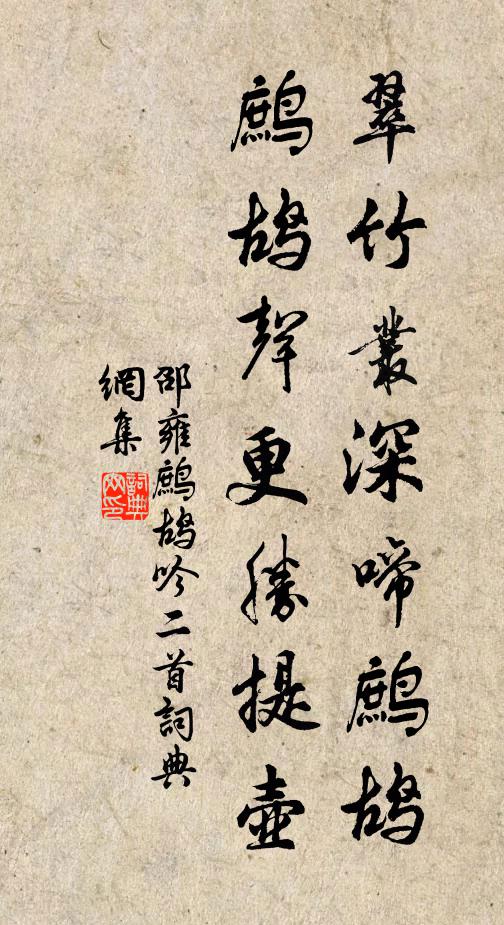 翠竹叢深啼鷓鴣
鷓鴣聲更勝提壺
邵雍鷓鴣吟二首詞典
網集
詞典網印